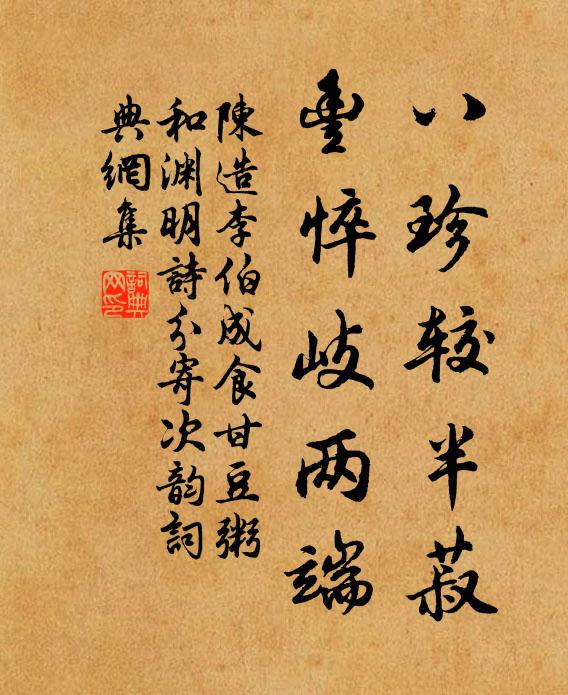 八珍较半菽
豊悴歧两端
陳造李伯成食甘豆粥
和渊明詩分寄次韵詞
典網集
詞典
网印